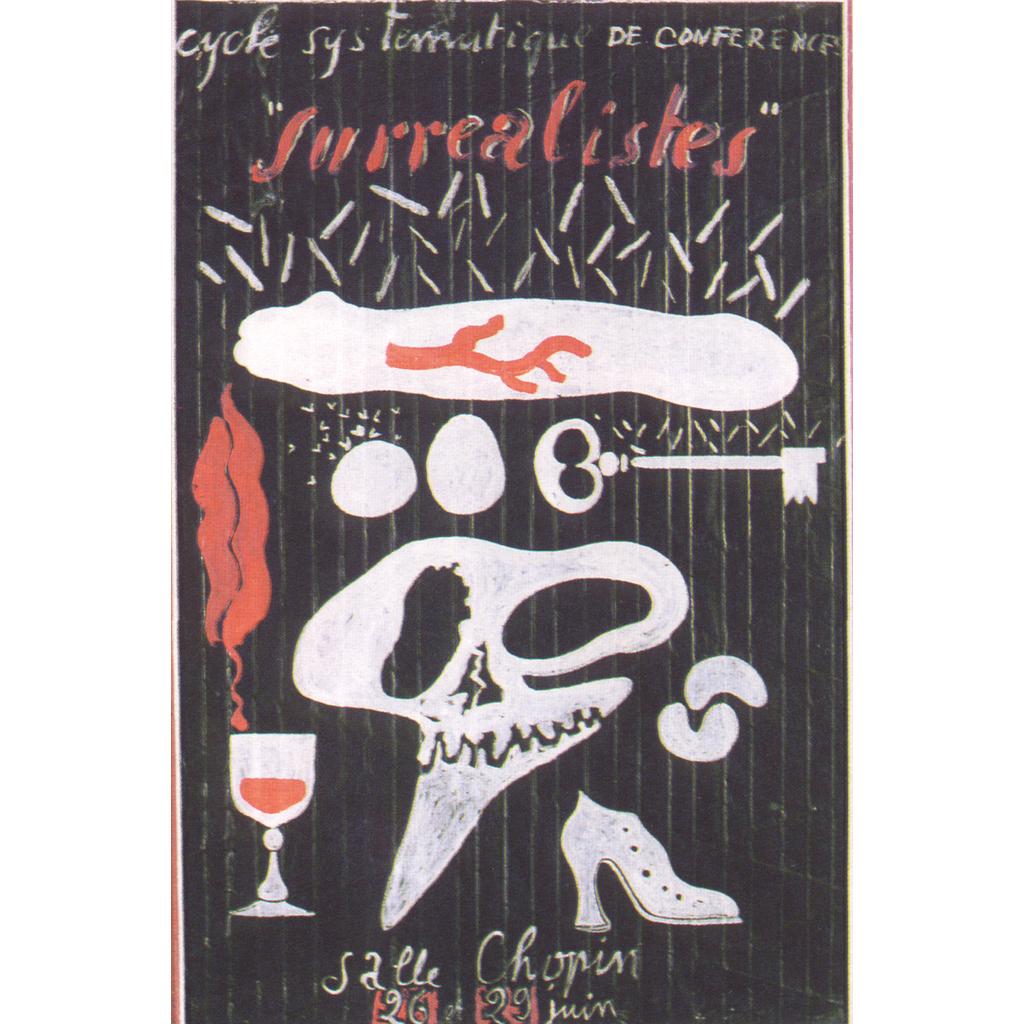 cycle systematique DE CONFERENCES
"surrealistes"
salle Chopin
26 et 29 juin